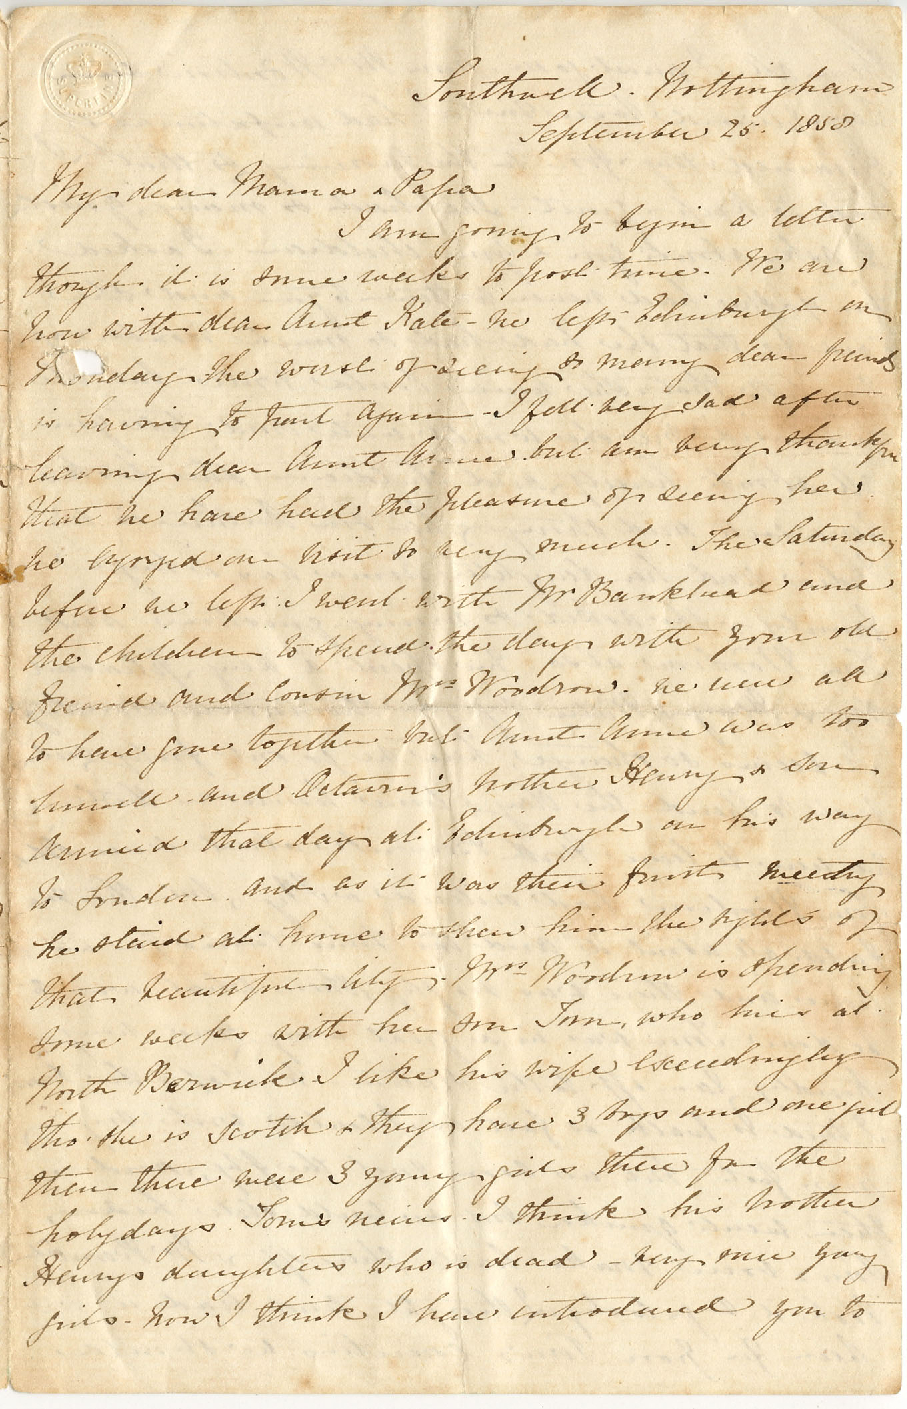 Southwell. Nottingham
September 25. 1858
My dear Mama & Papa
I am going to begin a letter
though it is some weeks to post time. We are
now with dear Aunt Kate - we left Edinburgh on
Monday the worst of seeing so many dear freinds
is having to part again - I felt very sad after
leaving dear Aunt Anne but am very thankful
that we have had the pleasure of seeing her
we enjoyed our visit so very much. The Saturday
before we left I went with Mr Bankhead and
the children to spend the day with your old
freind and Cousin Mrs Woodrow. we were all
to have gone together but Aunt Anne was too
unwell and Octavius's brother Henry & son
arrived that day at Edinburgh on his way
to London and as it was their first meeting
he staid at home to shew him the sights of
that beautiful City. Mrs Woodrow is spending
some weeks with her son Tom, who lives at
North Berwick I like his wife exceedingly
tho' she is scotch & they have 3 boys and one girl
then there were 3 young girls there for the
holydays Tom's neices I think his brother
Henrys daughters who is dead - very nice young
girls - Now I think I have introduced you to